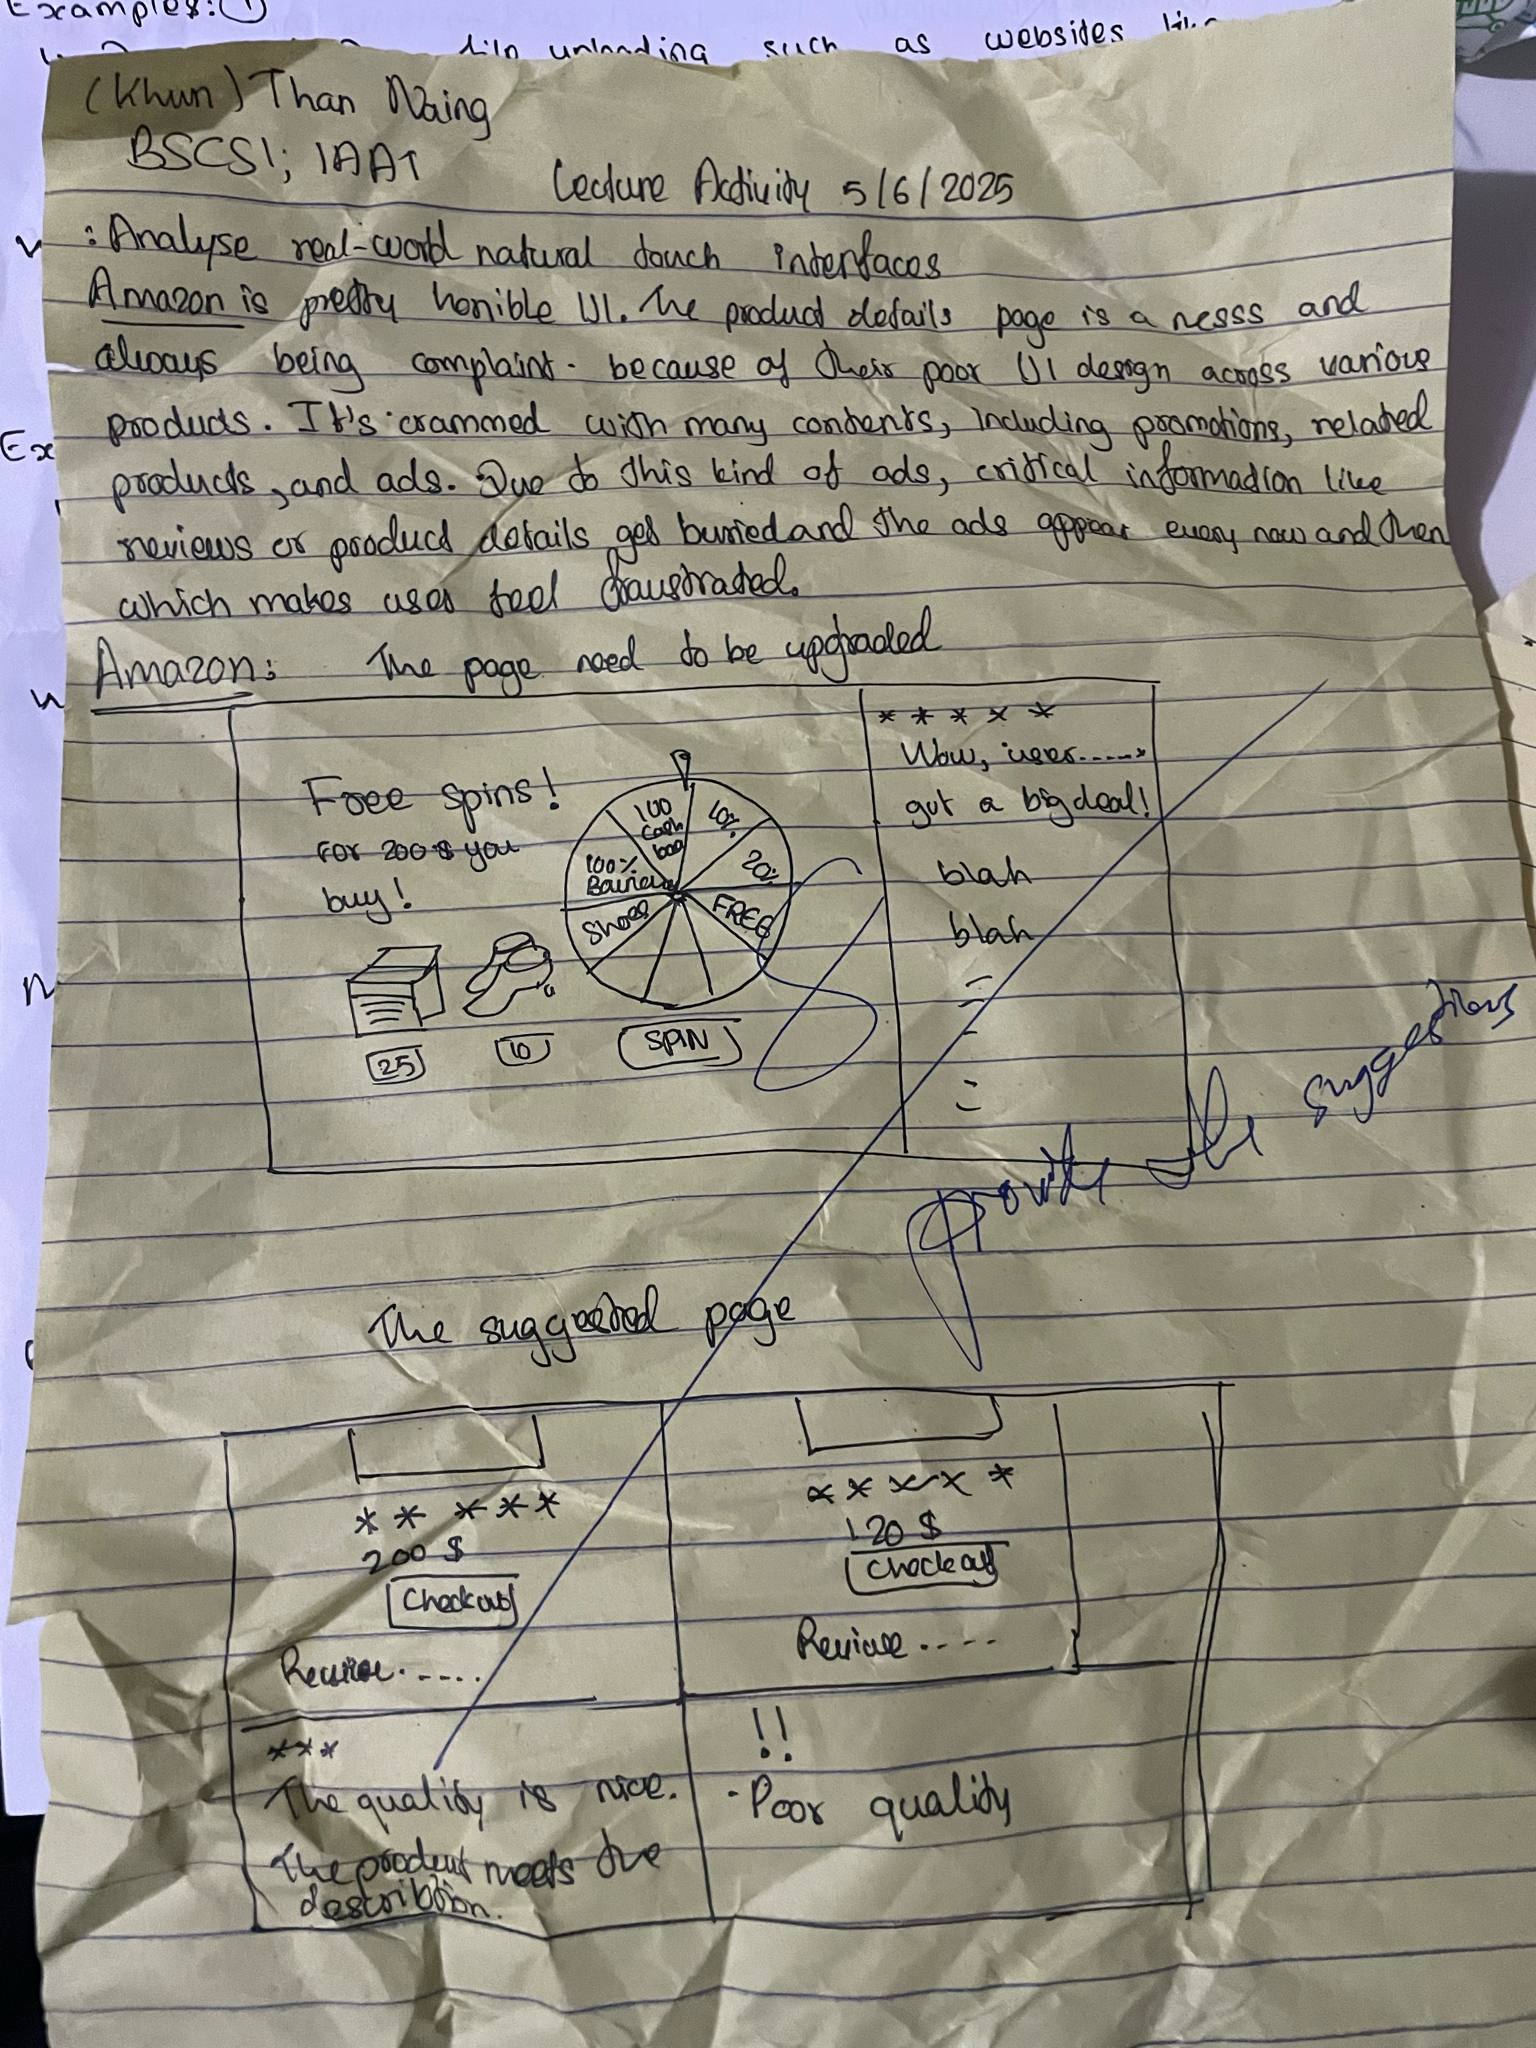 Examples: 1
file unloading such as websides like
(Khun) Than Naing
BSCS1; IAA1
Lecture Activity 5/6/2025
: Analyse real-world natural touch interfaces
Amazon is pretty horrible UI. The product details page is a messs and
always being complaint. because of their poor UI design across various
products. It's crammed with many contents, including promotions, related
products, and ads. Due to this kind of ads, critical information like
reviews or product details get buried and the ads appear every now and then
which makes user feel fraustrated.
Amazon: The page need to be upgraded
* * * * *
Wow, user.....
got a big deal!
blah
blah
Free spins!
For 200$ you
buy!
100 cash
10%
20%
FREE
100%
Shoes
25
10
SPIN
provide the suggestions
The suggested page
* * * * *
200 $
Checkout
Review.....
* * * * *
120 $
Checkout
Review....
***
The quality is nice.
The product meets the
describtion.
!!
- Poor quality
Ex